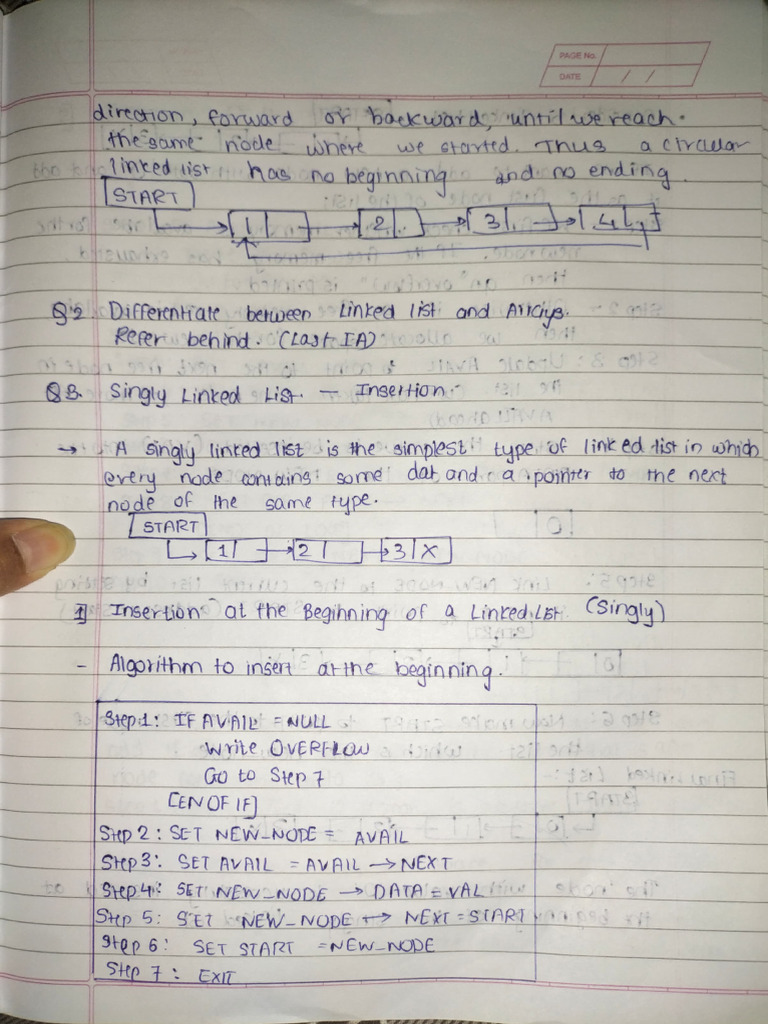 PAGE No.
DATE / /
direction, forward or backward, until we reach
the same node where we started. Thus a circular
linked list has no beginning and no ending.
START
1 2 3 4
Q.2 Differentiate between Linked list and Arrays.
Refer behind. (Last IA)
Q3. Singly Linked List. - Insertion.
→ A singly linked list is the simplest type of linked list in which
every node contains some dat and a pointer to the next
node of the same type.
START
1 2 3 X
1] Insertion at the Beginning of a Linked List (Singly)
- Algorithm to insert at the beginning.
Step 1: IF AVAIL = NULL
Write OVERFLOW
Go to Step 7
[END OF IF]
Step 2: SET NEW_NODE = AVAIL
Step 3: SET AVAIL = AVAIL → NEXT
Step 4: SET NEW_NODE → DATA = VAL
Step 5: SET NEW_NODE → NEXT = START
Step 6: SET START = NEW_NODE
Step 7: EXIT